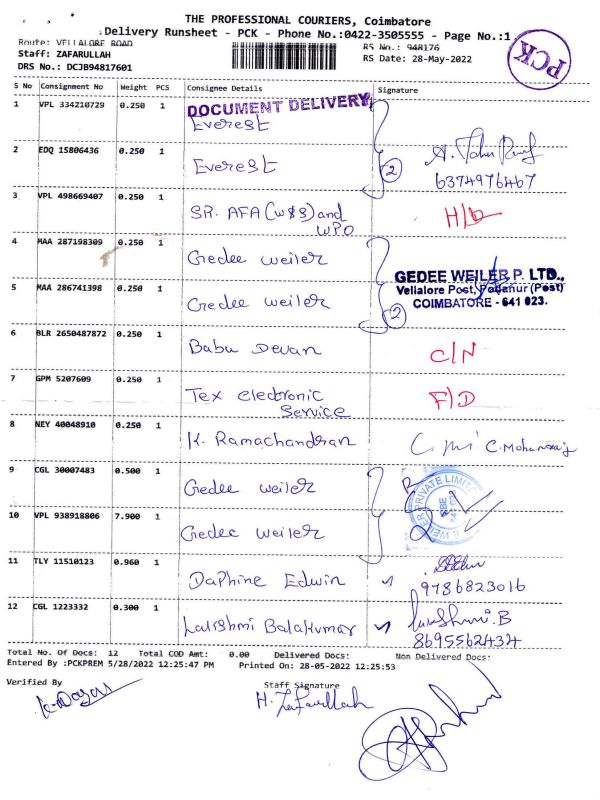 THE PROFESSIONAL COURIERS, Coimbatore
Delivery Runsheet - PCK - Phone No.:0422-3505555 - Page No.:1
PCK
Route: VELLALORE ROAD
RS No.: 948176
Staff: ZAFARULLAH
RS Date: 28-May-2022
DRS No.: DCJB94817601
S No Consignment No Weight PCS Consignee Details Signature
DOCUMENT DELIVERY
1 VPL 334210729 0.250 1 Everest
2 EDQ 15806436 0.250 1 Everest 2 A.
6374976467
3 VPL 498669407 0.250 1 SR. AFA (W&S) and WPO H/D
4 MAA 287198309 0.250 1 Gedee weiler
GEDEE WEILER P. LTD.,
Vellalore Post, Podanur (Post)
COIMBATORE - 641 023.
5 MAA 286741398 0.250 1 Gedee weiler 2
6 BLR 2650487872 0.250 1 Babu Devan C/N
7 GPM 5207609 0.250 1 Tex electronic Service F/D
8 NEY 40048910 0.250 1 K. Ramachandran C. Mohanraj
9 CGL 30007483 0.500 1 Gedee weiler
WEILER PRIVATE LIMITE
10 VPL 938918806 7.900 1 Gedee weiler
11 TLY 11510123 0.960 1 Daphine Edwin
9786823016
12 CGL 1223332 0.300 1 Lakshmi Balakumar Lakshmi. B
8695562434
Total No. Of Docs: 12 Total COD Amt: 0.00 Delivered Docs: Non Delivered Docs:
Entered By :PCKPREM 5/28/2022 12:25:47 PM Printed On: 28-05-2022 12:25:53
Verified By Staff Signature
H. Zafarullah